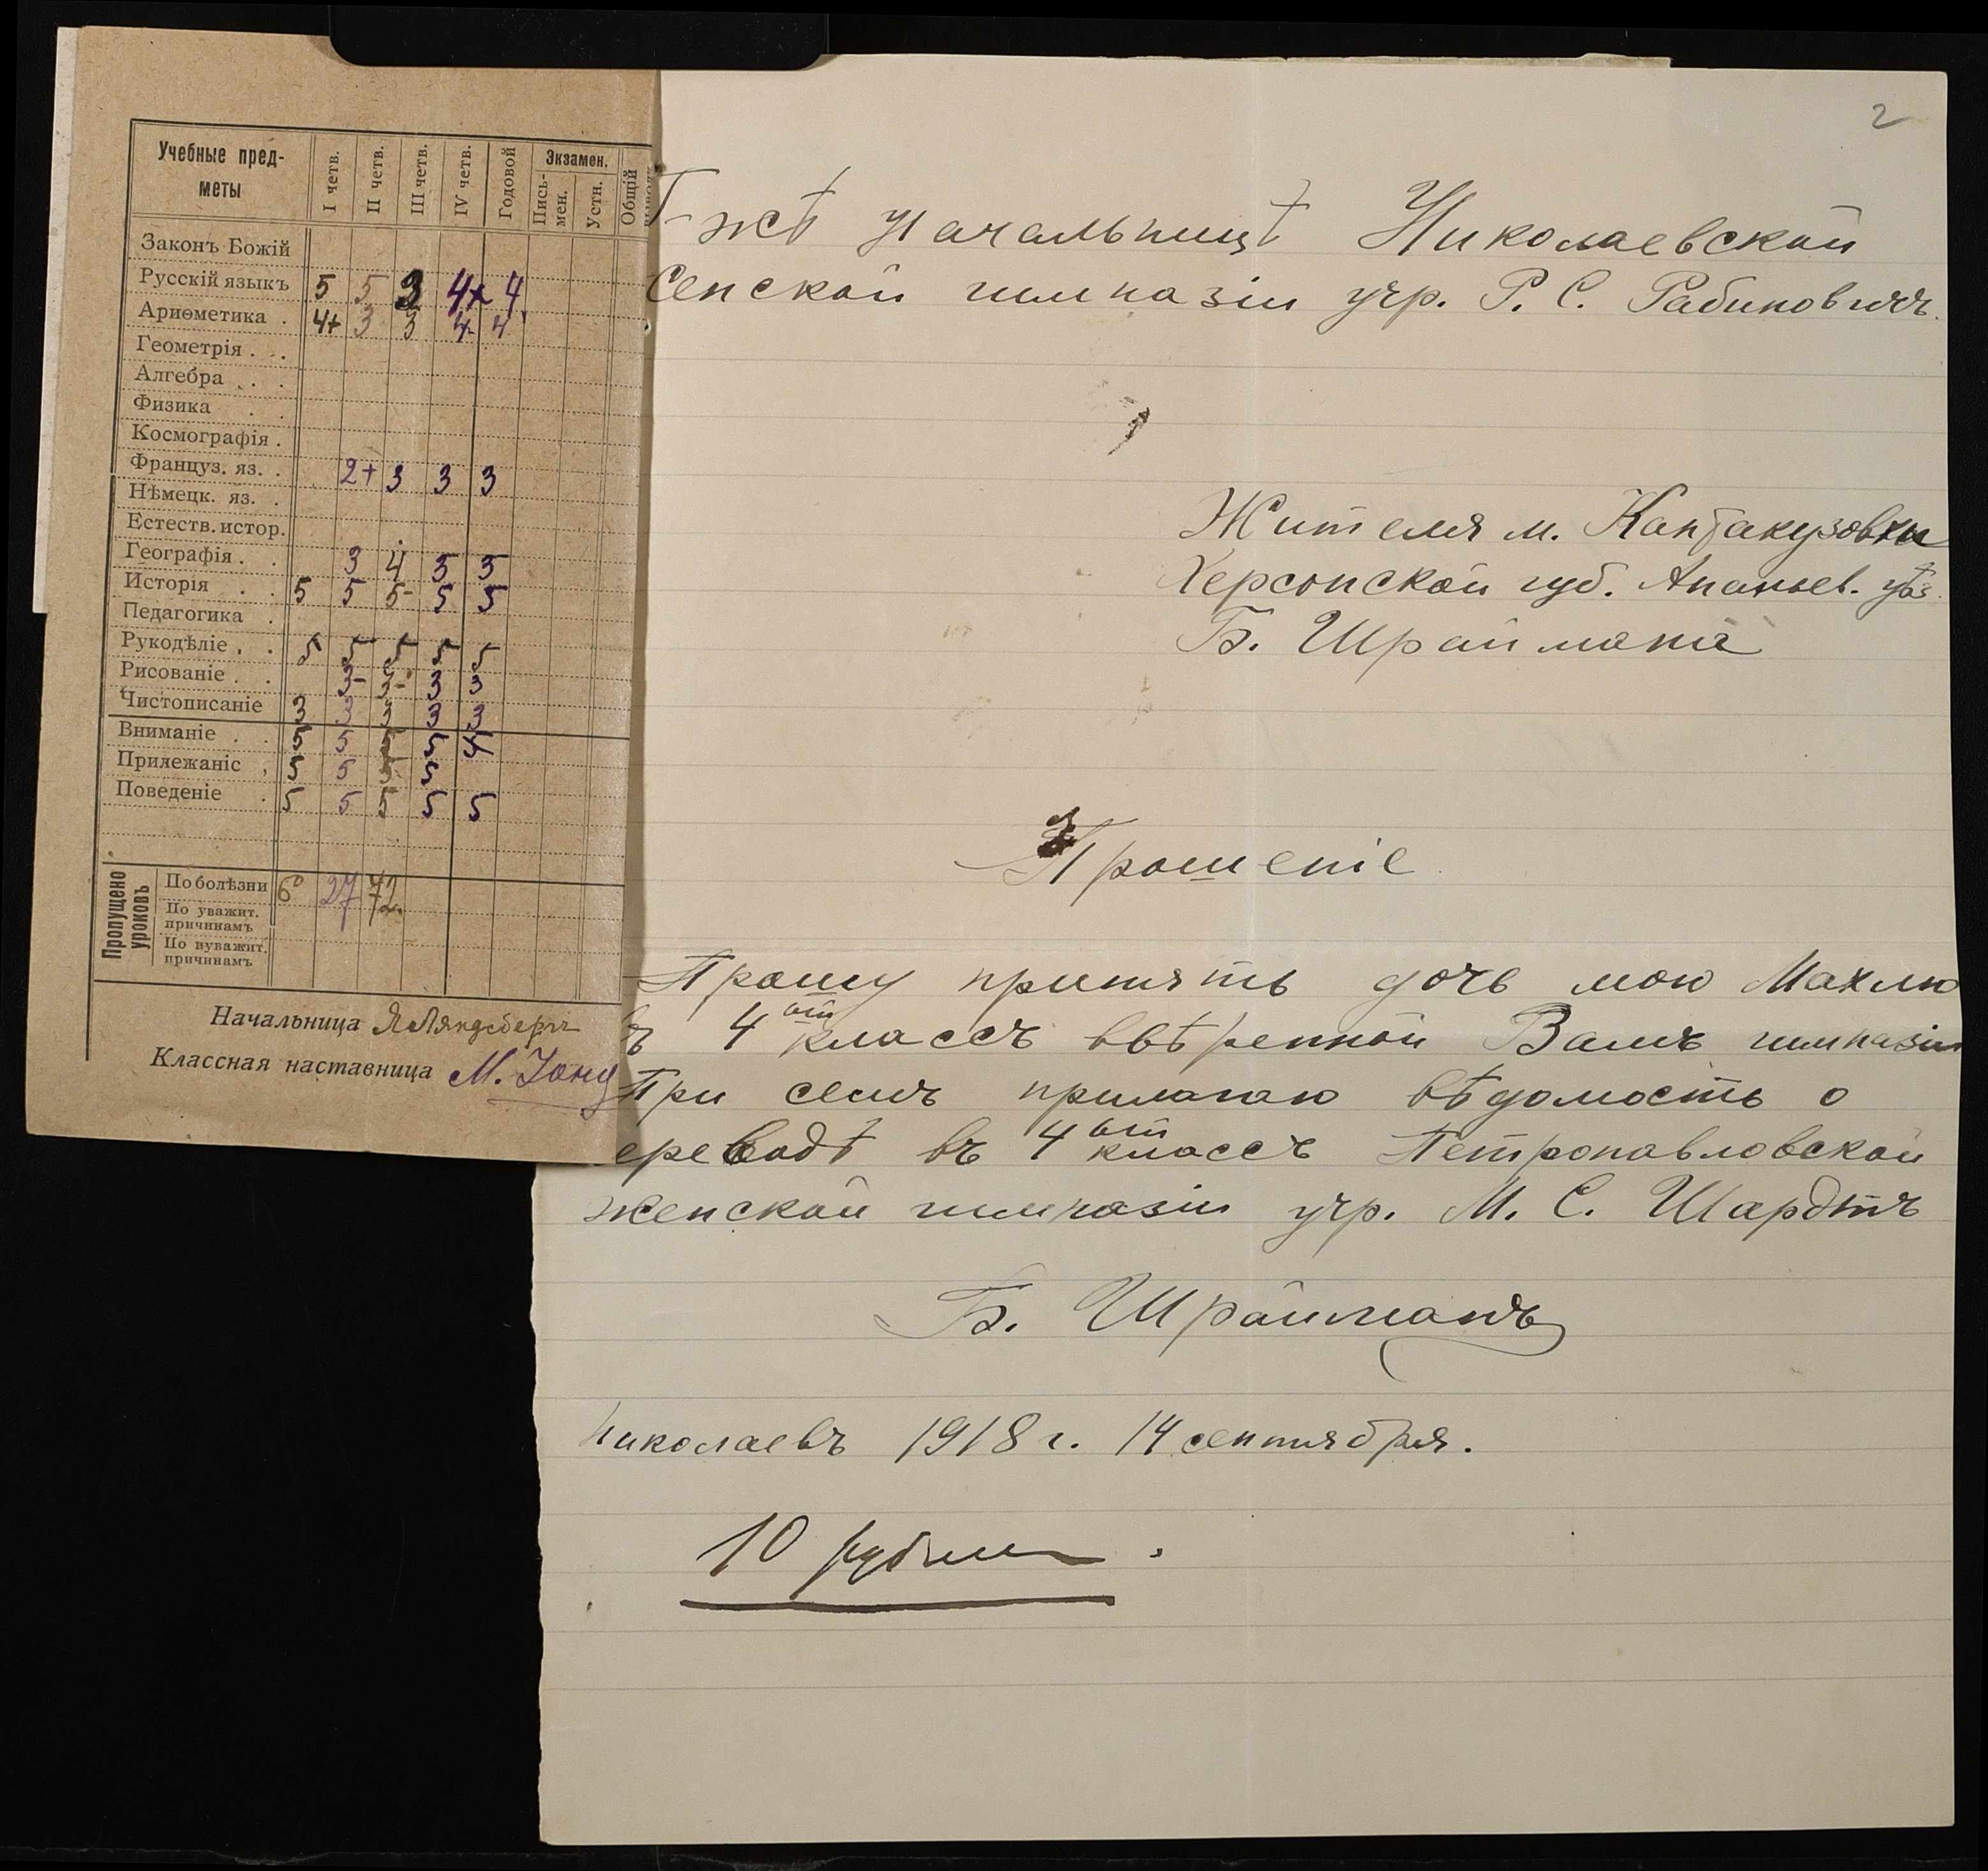 Учебные пред-
меты
I четв. II четв. III четв. IV четв. Годовой Экзамен. Пись-мен. Устн. Общій
Законъ Божій
Русскій языкъ 5 5 3 4+ 4
Ариѳметика . 4+ 3 3 4- 4
Геометрія . .
Алгебра . .
Физика . .
Космографія .
Француз. яз. . 2+ 3 3 3
Нѣмецк. яз. .
Естеств. истор.
Географія . . 3 4 5 5
Исторія . . 5 5 5- 5 5
Педагогика .
Рукодѣліе . . 5 5 5 5 5
Рисованіе . . 3- 3- 3 3
Чистописаніе 3 3 3 3 3
Вниманіе . . 5 5 5 5 4
Прилежаніе . 5 5 5 5
Поведеніе . 5 5 5 5 5
Пропущено уроковъ
По болѣзни 6 27 72
По уважит. причинамъ
По неуважит. причинамъ
Начальница Ляндсбергъ
Классная наставница М.
2
Г-жѣ Начальницѣ Николаевской
женской гимназіи учр. Р. С. Рабиновичъ.
Жителя м. Кантакузовки
Херсонской губ. Ананьев. уѣз.
Б. Шраймана
Прошеніе
Прошу принять дочь мою Махлю
въ 4ый классъ ввѣренной Вамъ гимназіи
При семъ прилагаю вѣдомость о
ереводѣ въ 4ый классъ Петропавловской
женской гимназіи учр. М. С. Шардтъ
Б. Шрайманъ
Николаевъ 1918 г. 14 сентября.
10 рублей